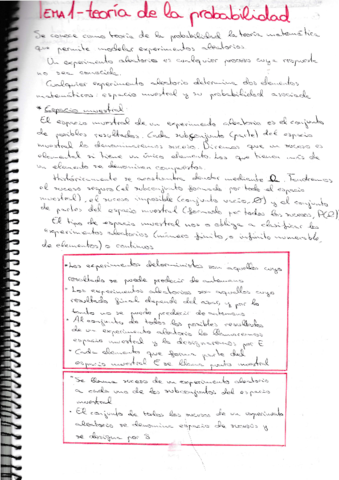 TEMA 1 - teoría de la probabilidad
Se conoce como teoría de la probabilidad la teoría matemática
que permite modelar experimentos aleatorios
Un experimento aleatorio es cualquier proceso cuya respuesta
no sea conocida.
Cualquier experimento aleatorio determina dos elementos
matemáticos: espacio muestral y su probabilidad asociada
• Espacio muestral
El espacio muestral de un experimento aleatorio es el conjunto
de posibles resultados. Cada subconjunto (parte) del espacio
muestral lo denominaremos suceso. Diremos que un suceso es
elemental si tiene un único elemento. Los que tienen más de
un elemento se denominan compuestos.
Históricamente se mediante Ω. Tendremos
el suceso seguro (el subconjunto formado por todo el espacio
muestral), el suceso imposible (conjunto vacío, Ø) y el conjunto
de partes del espacio muestral (formado por todos los sucesos, P(Ω))
El tipo de espacio muestral nos obliga a clasificar los
experimentos aleatorios (número finito, o infinito numerable,
de elementos) o continuos
• Los experimentos deterministas son aquellos cuyo
resultado se puede predecir de antemano
• Los experimentos aleatorios son aquellos cuyo
resultado final depende del azar, y por lo
tanto no se puede predecir de antemano
• Al conjunto de todos los posibles resultados
de un experimento aleatorio lo llamaremos
espacio muestral y lo designaremos por E
• Cada elemento que forma parte del
espacio muestral E se llama punto muestral
• Se llama suceso de un experimento aleatorio
a cada uno de los subconjuntos del espacio
muestral
• El conjunto de todos los sucesos de un experimento
aleatorio se denomina espacio de sucesos y
se designa por S